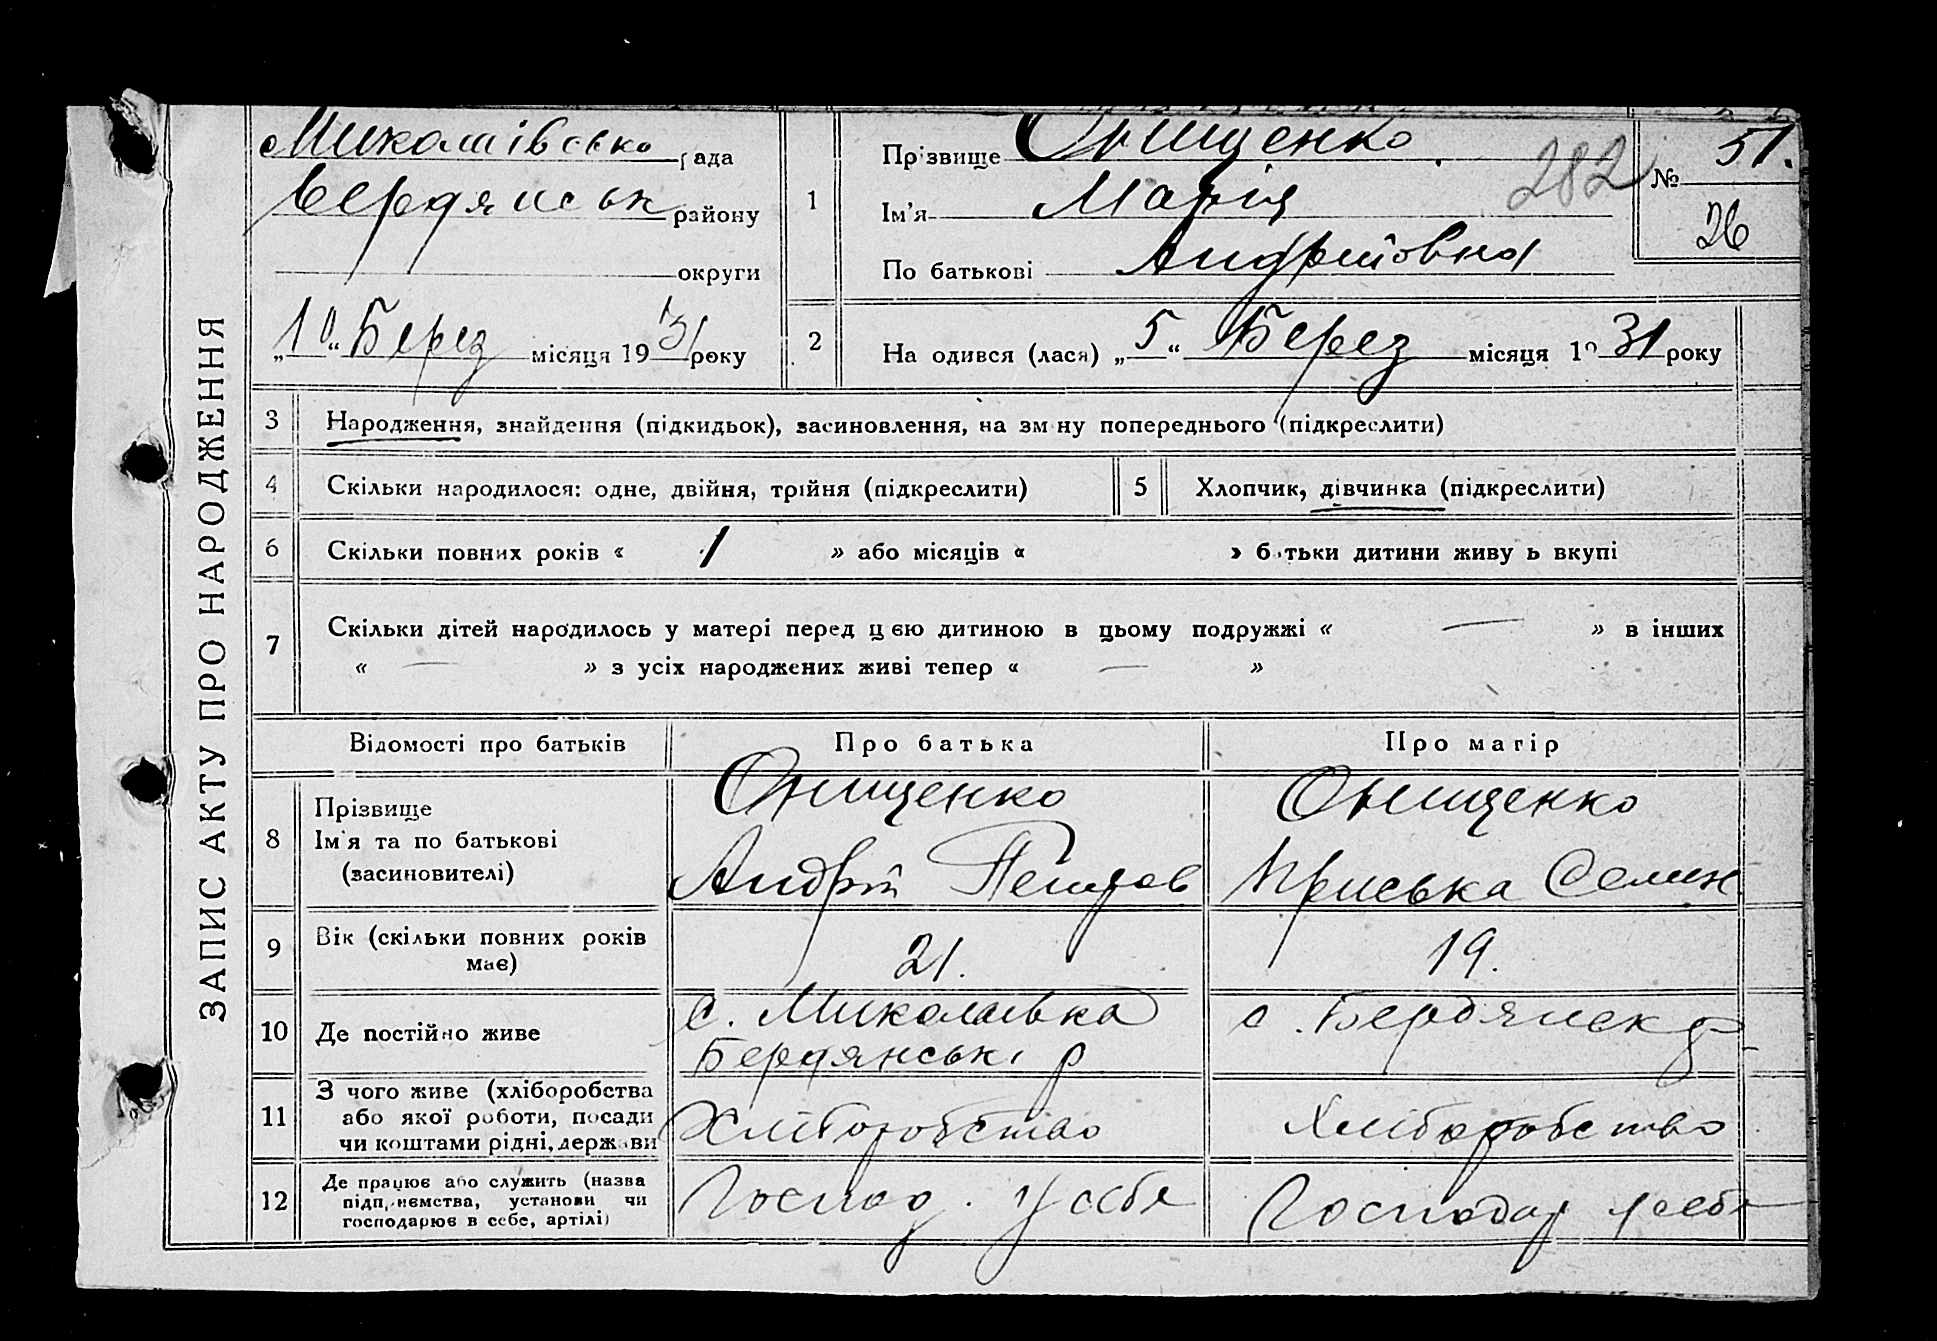 ЗАПИС АКТУ ПРО НАРОДЖЕННЯ
Миколаївсько рада
Бердянськ району
округи
„10“ Берез місяця 1931 року
1 Прізвище Онищенко
Ім'я Марія
По батькові Андріївна
282
№ 51.
26
2 На одився (лася) „5“ Берез місяця 19 31 року
3 Народження, знайдення (підкидьок), засиновлення, на зм ну попереднього (підкреслити)
4 Скільки народилося: одне, двійня, трійня (підкреслити) 5 Хлопчик, дівчинка (підкреслити)
6 Скільки повних років « 1 » або місяців « » б тьки дитини живу ь вкупі
7 Скільки дітей народилось у матері перед цею дитиною в цьому подружжі « — » в інших
« — » з усіх народжених живі тепер « — »
Відомості про батьків Про батька Про матір
8 Прізвище
Ім'я та по батькові
(засиновителі)
Онищенко
Андрій Петров
Онищенко
Приська Семен
9 Вік (скільки повних років
має)
21. 19.
10 Де постійно живе
с. Миколаївка
Бердянські р
с. Бердянск
11 З чого живе (хліборобства
або якої роботи, посади
чи коштами рідні, держави
Хліборобство Хліборобство
12 Де працює або служить (назва
підп иємства, установи чи
господарює в себе, артілі)
Господ. у себе Господар у себе